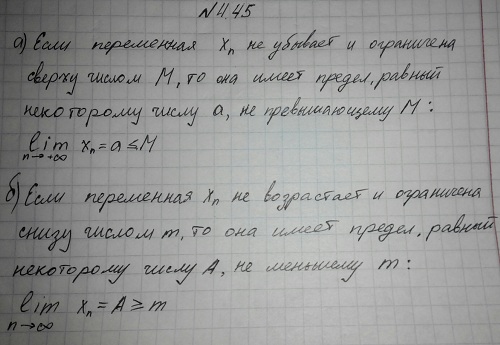 №4.45
а) Если переменная xₙ не убывает и ограничена
сверху числом M, то она имеет предел, равный
некоторому числу a, не превышающему M:
lim xₙ = a ≤ M
n→+∞
б) Если переменная xₙ не возрастает и ограничена
снизу числом m, то она имеет предел, равный
некоторому числу A, не меньшему m:
lim xₙ = A ≥ m
n→∞